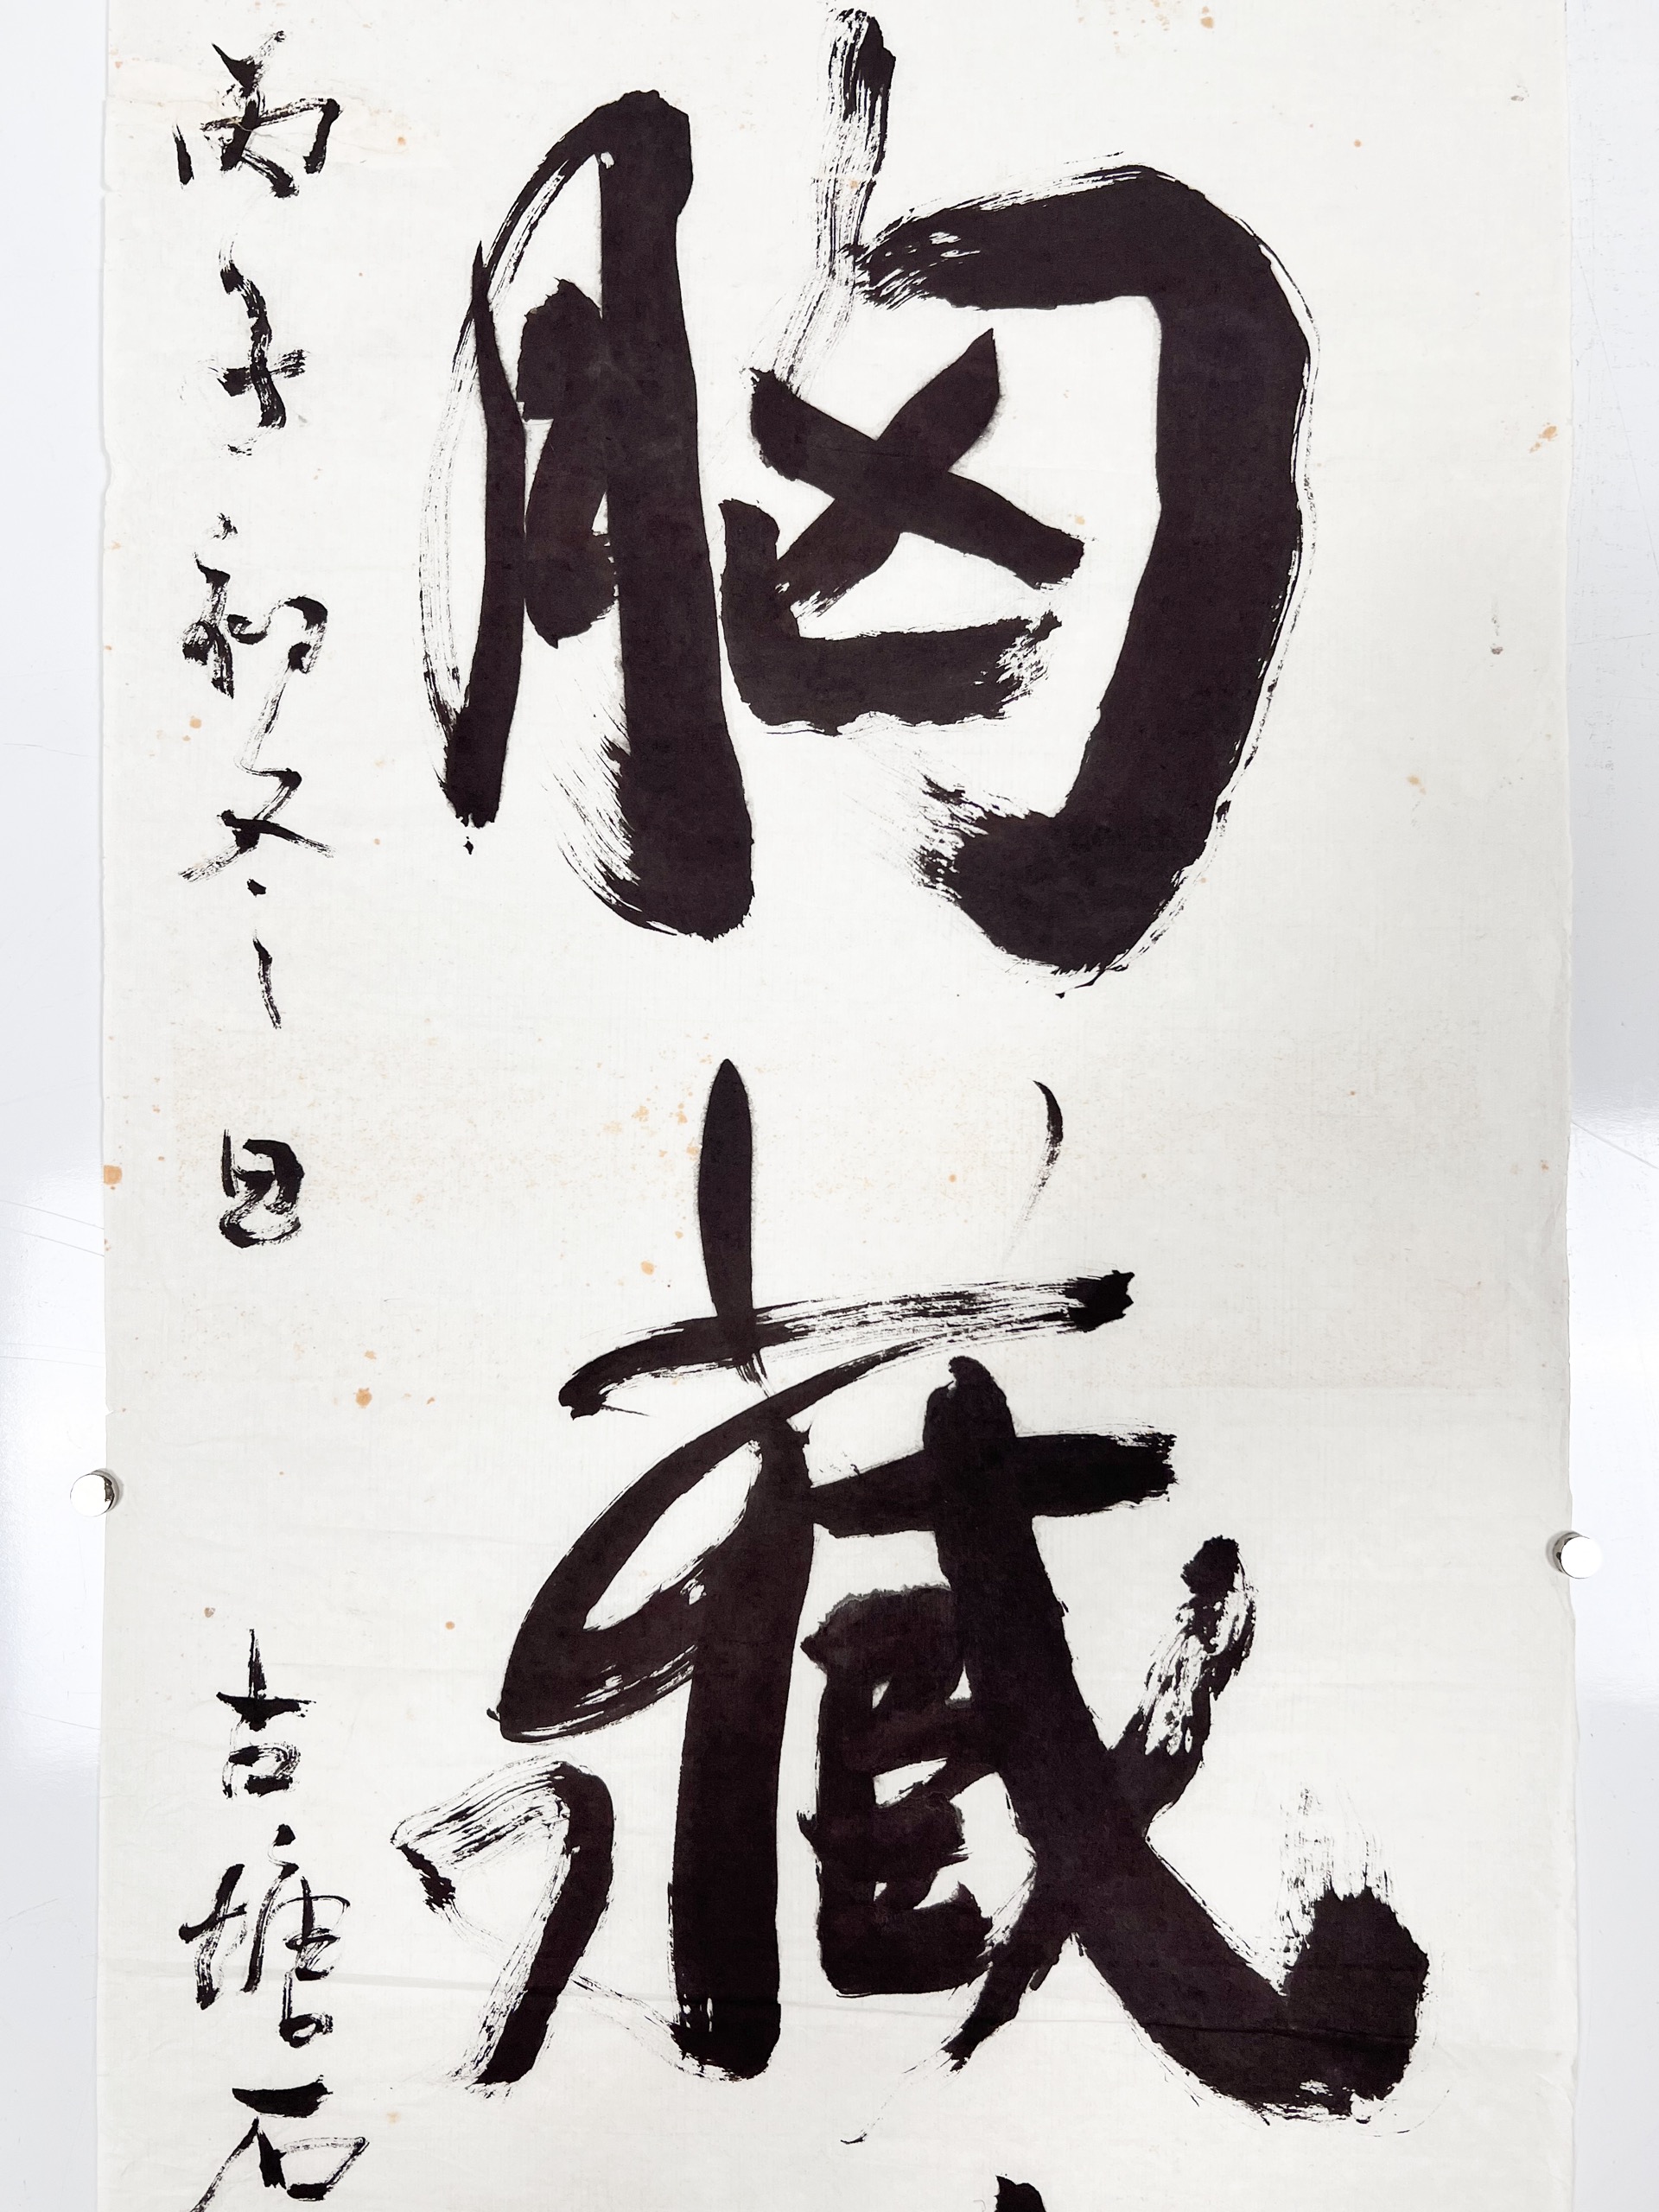 胸藏
丙子初冬之日 古塘石